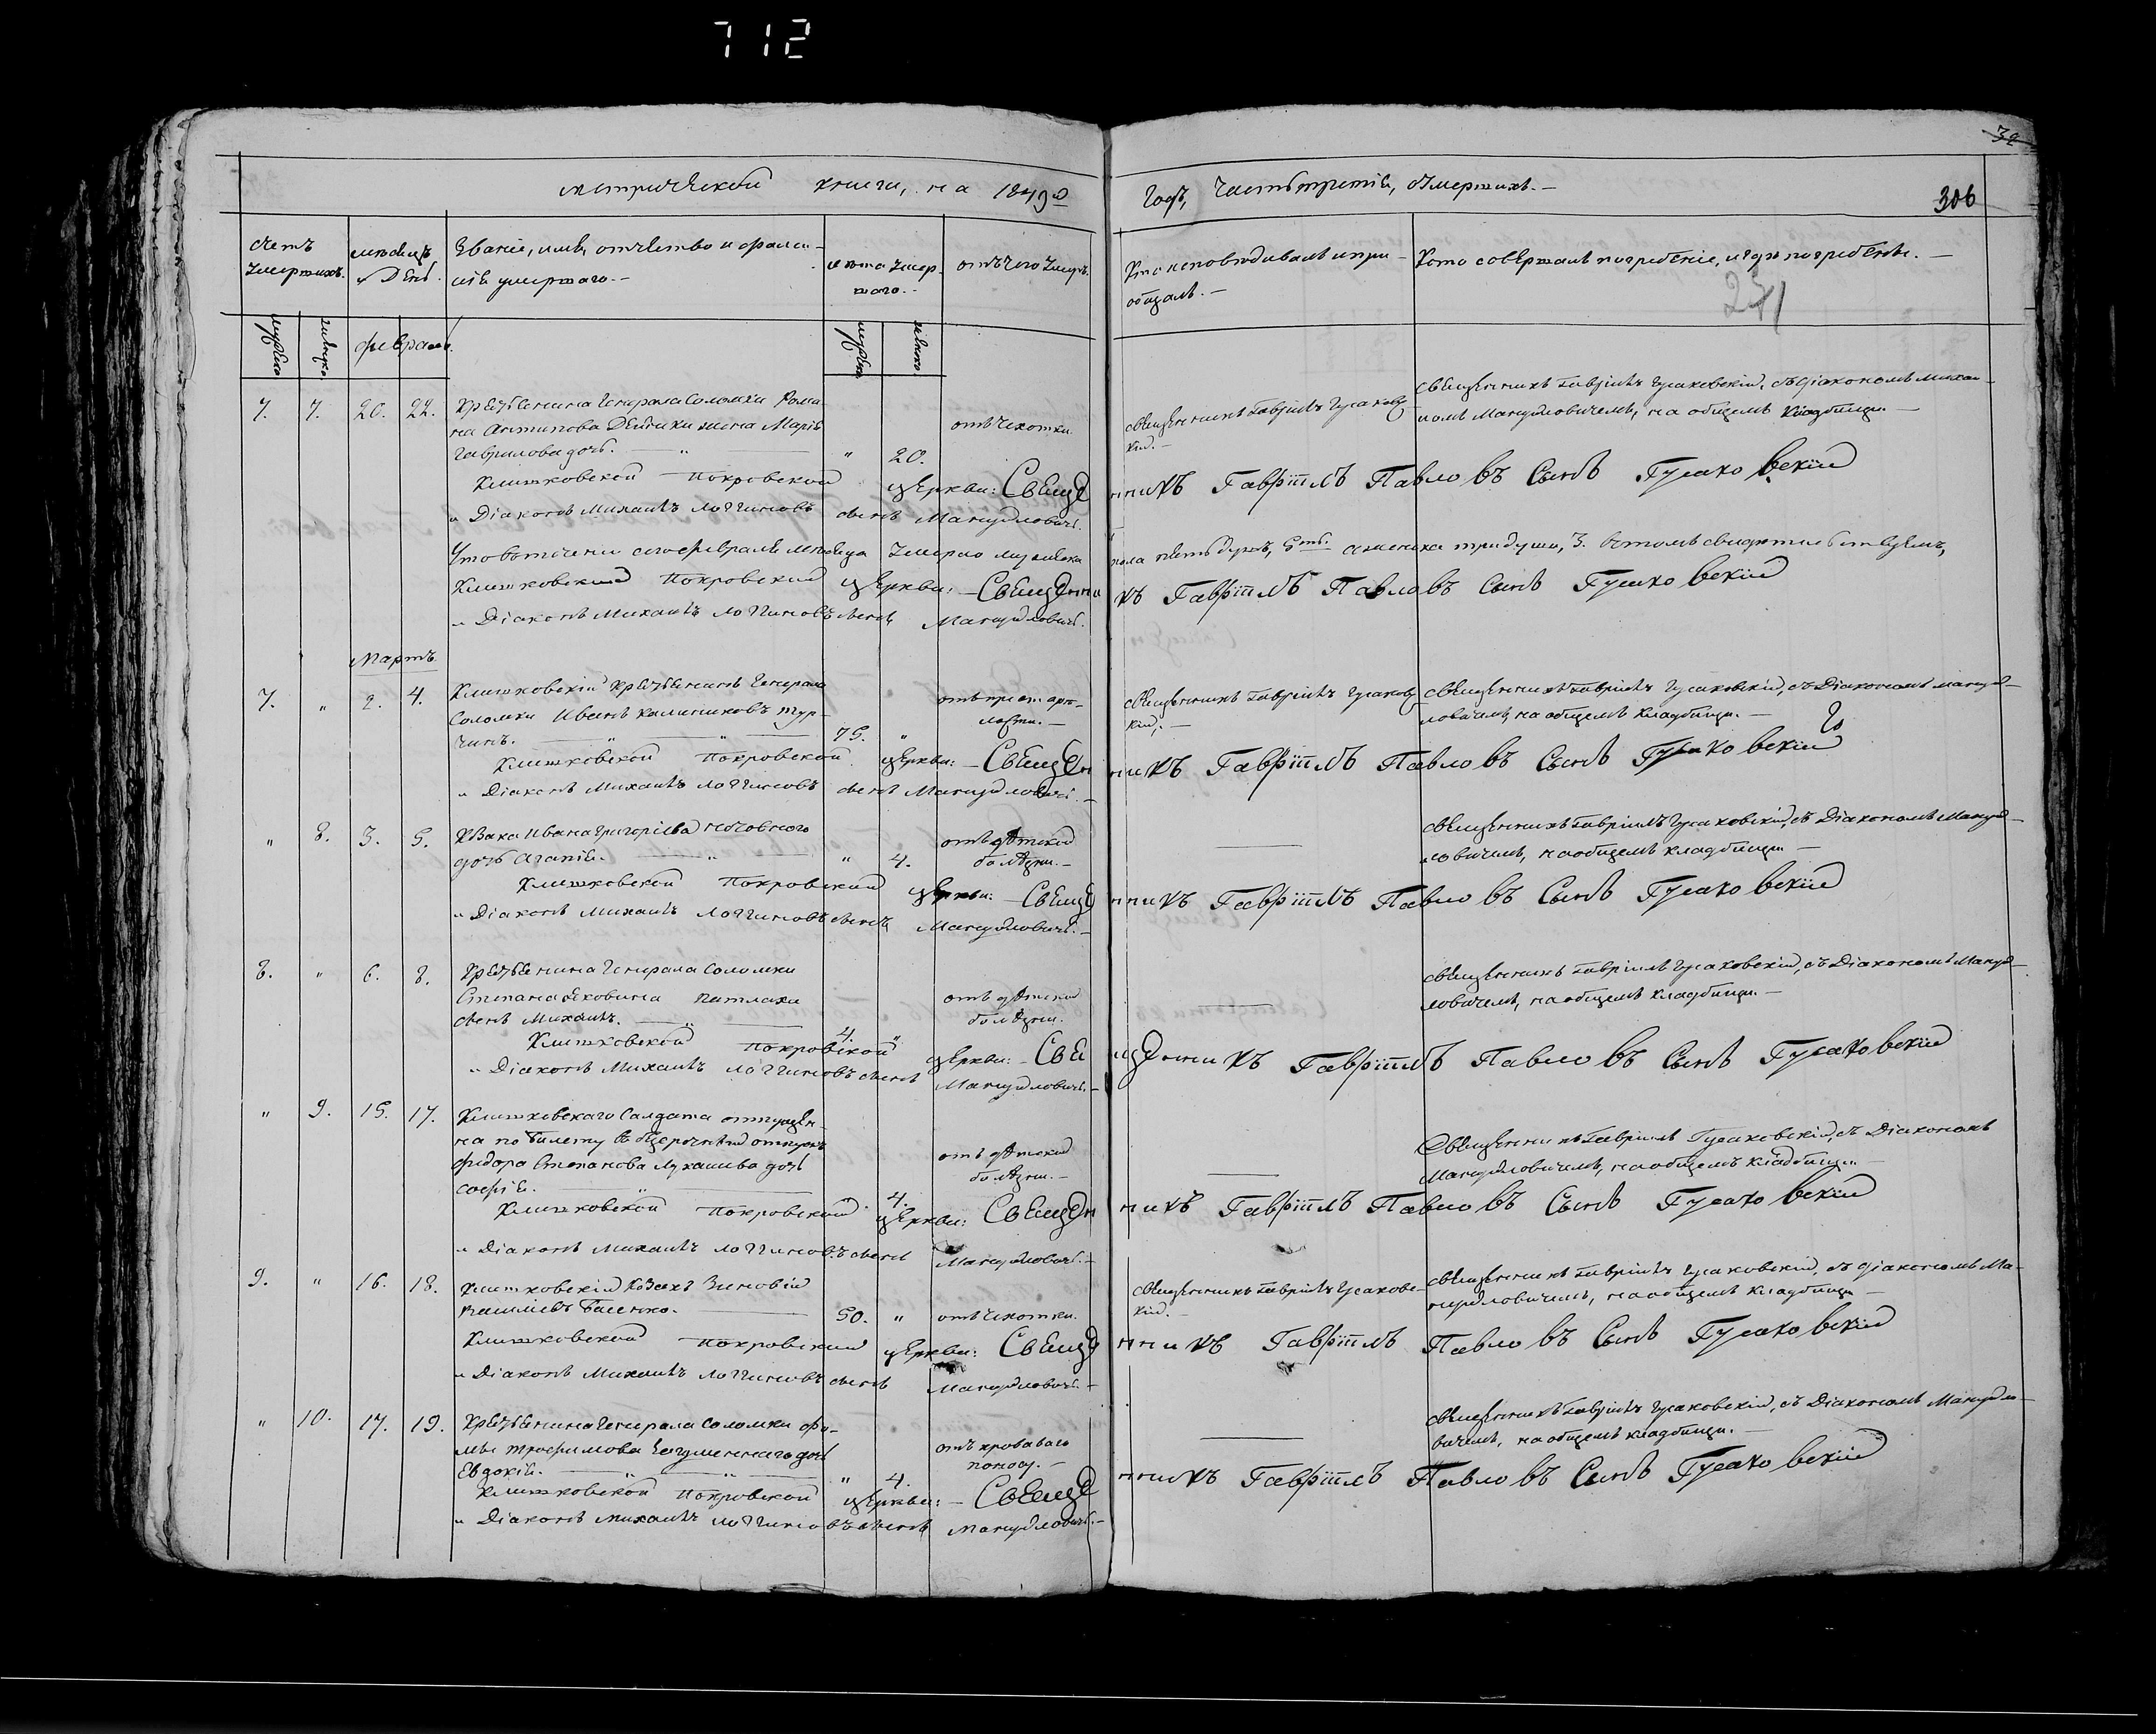 712
метрической книги, на 1849й Годъ, Часть третія, обумершихъ.—
306
счетъ умершихъ. мѣсяцъ и День. Званіе, имя, отчество и фами-
лія умершаго.— лѣта умер-
шаго.— отъ чего умеръ. Кто исповѣдывалъ и при-
общалъ.— Кто совершалъ погребеніе, и гдѣ погребены.—
241
мужска женска февраль мужска женска
7. 7. 20. 22. Крестьянина Генерала Соломки Рома-
на Антипова жена Марія
Гаврилова дочь. " 20. отъ чахотки. священникъ Гавріилъ Гусаковс-
кій.— священникъ Гавріилъ Гусаковскій, съ діакономъ Михаи-
ломъ Мануйловичемъ, на общемъ кладбищи.—
Клишковской Покровской церкви: Священникъ Гавріилъ Павловъ Сынъ Гусаковскій
" Діаконъ Михаилъ Логгиновъ сынъ Мануйловичъ.
Что в теченіи сего февраля мѣсяца умерло мужеска пола пять душъ, 5ть. а женска три души, 3. въ томъ свидѣтельствуемъ,
Клишковской Покровской церкви: Священникъ Гавріилъ Павловъ Сынъ Гусаковскій
" Діаконъ Михаилъ Логгиновъ сынъ Мануйловичъ.
Мартъ.
7. " 2. 4. Клишковскій крестьянинъ Генерала
Соломки Иванъ Калиниковъ Тур-
чинъ. 75. " отъ престарѣ-
лости.— священникъ Гавріилъ Гусаковс-
кій.— священникъ Гавріилъ Гусаковскій, съ Діакономъ Мануй-
ловичемъ, на общемъ кладбищи.—
Клишковской Покровской церкви: Священникъ Гавріилъ Павловъ Сынъ Гусаковскій
" Діаконъ Михаилъ Логгиновъ сынъ Мануйловичъ.—
" 8. 3. 5. Козака Ивана Григоріева
дочь Агапія. " 4. отъ дѣтской
болѣзни.— священникъ Гавріилъ Гусаковскій, съ Діакономъ Мануй-
ловичемъ, на общемъ кладбищи.—
Клишковской Покровской церкви: Священникъ Гавріилъ Павловъ Сынъ Гусаковскій
" Діаконъ Михаилъ Логгиновъ сынъ Мануйловичъ.—
8. " 6. 8. Крестьянина Генерала Соломки
Степана Яковина Петлахи
сынъ Михаилъ. 4. " отъ дѣтской
болѣзни. священникъ Гавріилъ Гусаковскій, съ Діакономъ Мануй-
ловичемъ, на общемъ кладбищи.—
Клишковской Покровской церкви: Священникъ Гавріилъ Павловъ Сынъ Гусаковскій
" Діаконъ Михаилъ Логгиновъ сынъ Мануйловичъ.—
" 9. 15. 17. Клишковскаго Салдата отпущен-
на по билету в отпускъ
Федора Степанова дочь
Софія. " 4. отъ дѣтской
болѣзни.— Священникъ Гавріилъ Гусаковскій, съ Діакономъ
Мануйловичемъ, на общемъ кладбищи.—
Клишковской Покровской церкви: Священникъ Гавріилъ Павловъ Сынъ Гусаковскій
" Діаконъ Михаилъ Логгиновъ сынъ Мануйловичъ.—
9. " 16. 18. Клишковскій Козакъ Зиновій
Басенко. 50. " отъ чахотки. священникъ Гавріилъ Гусаковс-
кій.— священникъ Гавріилъ Гусаковскій, съ діакономъ Ма-
нуйловичемъ, на общемъ кладбищи.—
Клишковской Покровской церкви: Священникъ Гавріилъ Павловъ Сынъ Гусаковскій
" Діаконъ Михаилъ Логгиновъ сынъ Мануйловичъ.—
" 10. 17. 19. Крестьянина Генерала Соломки Фо-
мы Трофимова дочь
Евдокія. " 4. отъ кроваваго
поносу.— священникъ Гавріилъ Гусаковскій, съ Діакономъ Мануйло-
вичемъ, на общемъ кладбищи.—
Клишковской Покровской церкви: Священникъ Гавріилъ Павловъ Сынъ Гусаковскій
" Діаконъ Михаилъ Логгиновъ сынъ Мануйловичъ.—